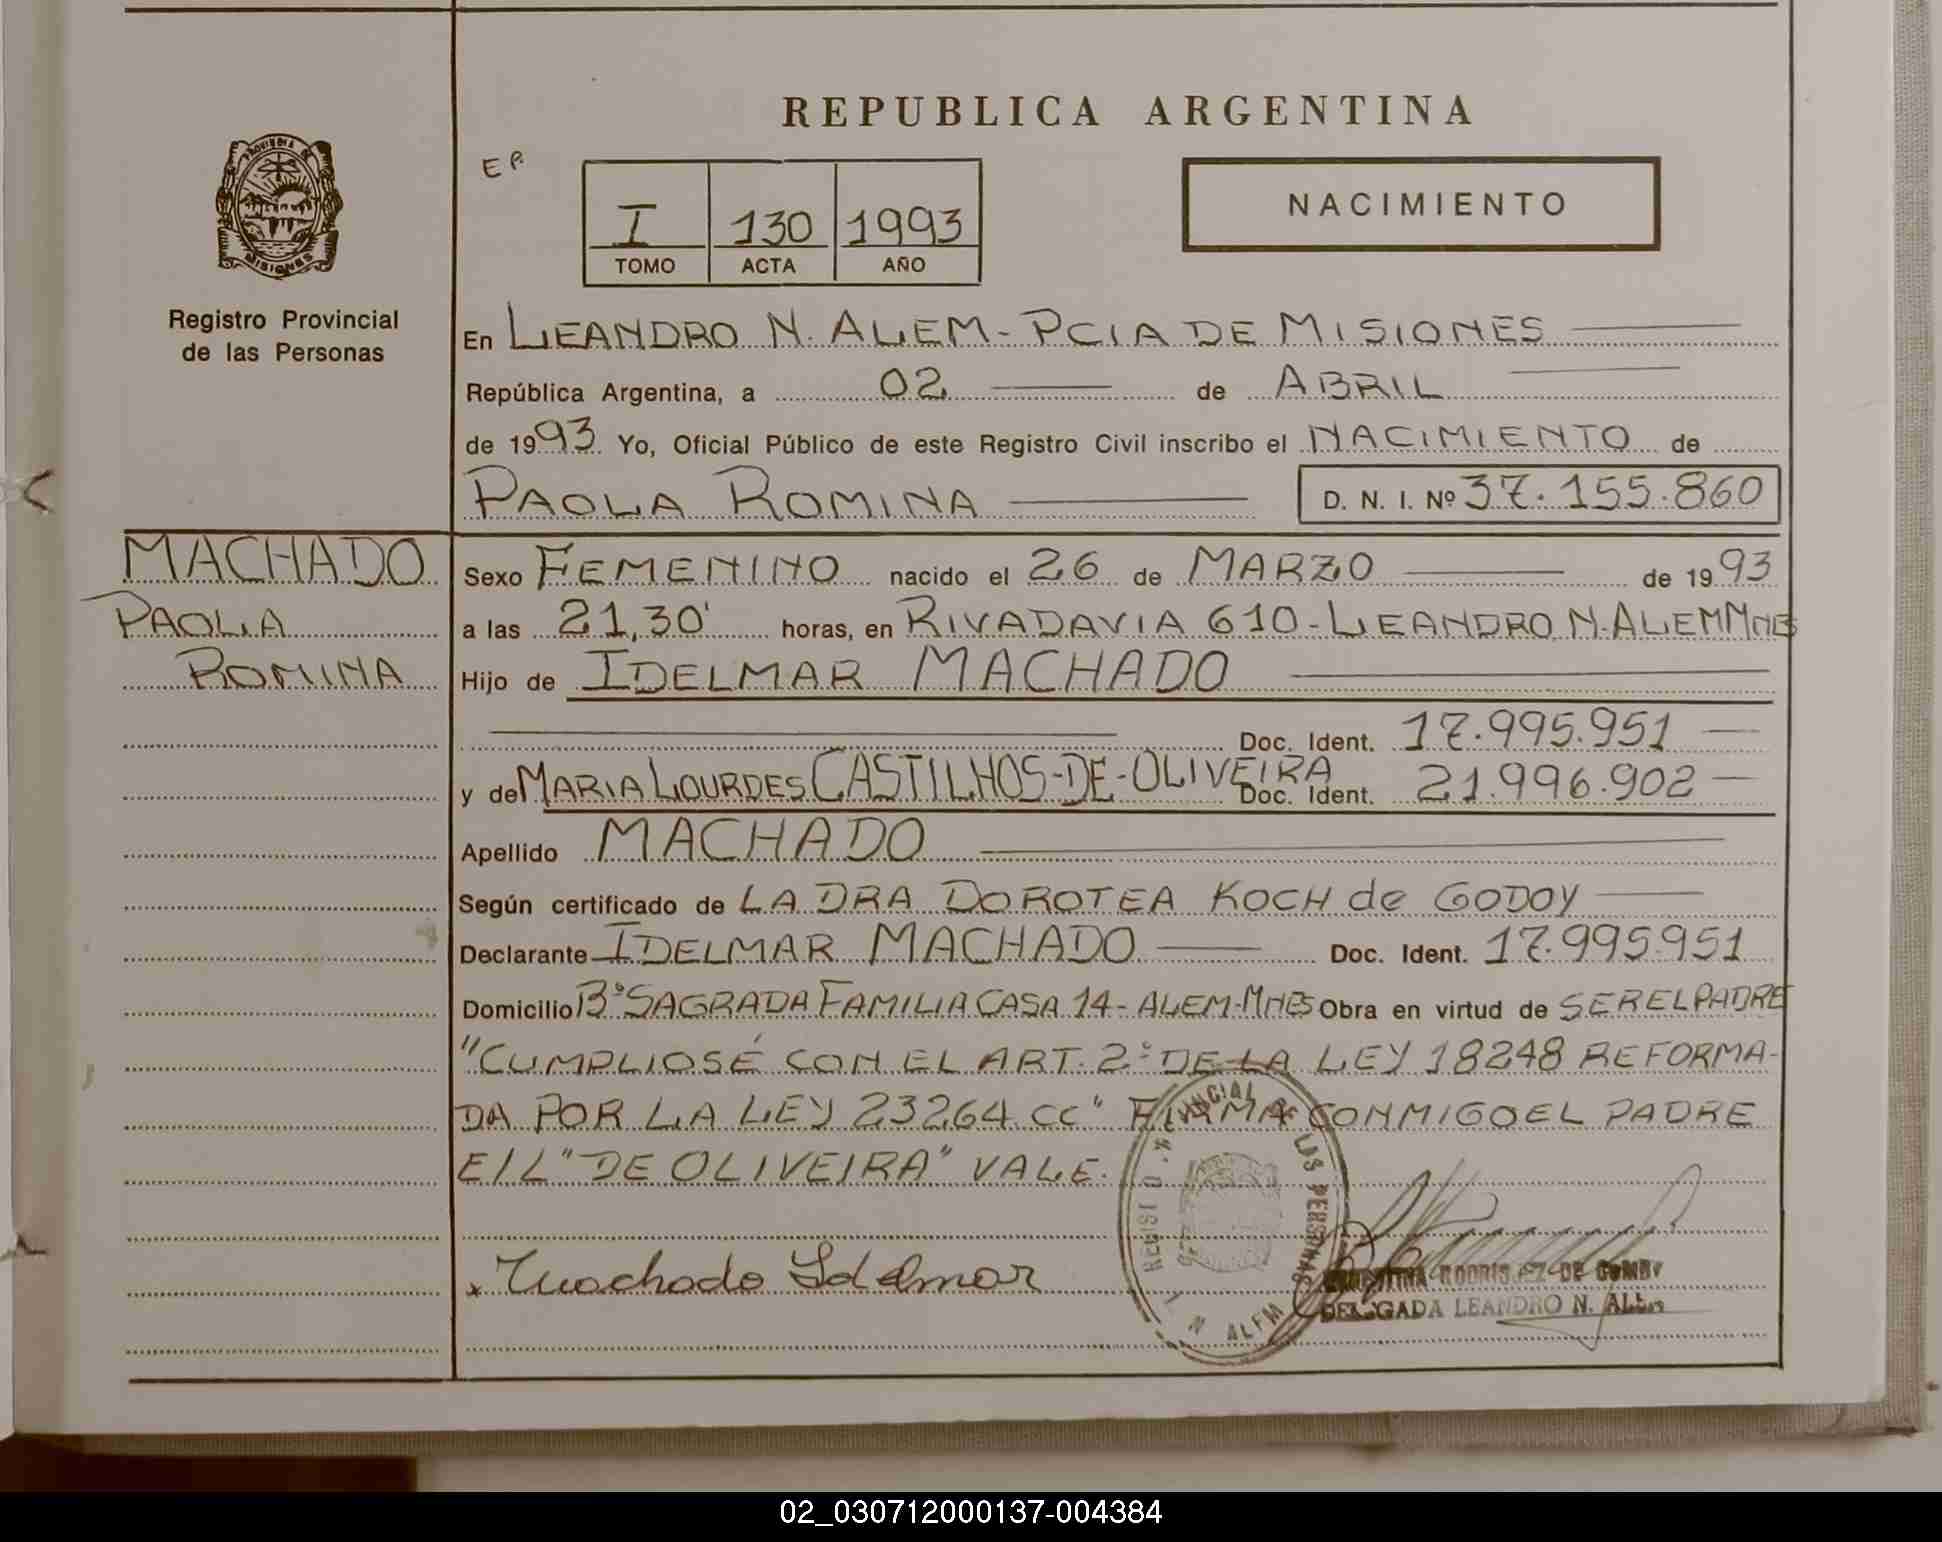 REPUBLICA ARGENTINA
PROVINCIA DE
MISIONES
Registro Provincial
de las Personas
E P.
I 130 1993
TOMO ACTA AÑO
NACIMIENTO
En LEANDRO N. ALEM - PCIA DE MISIONES
República Argentina, a 02 de ABRIL
de 1993 Yo, Oficial Público de este Registro Civil inscribo el NACIMIENTO de
PAOLA ROMINA D. N. I. Nº 37.155.860
MACHADO
PAOLA
ROMINA
Sexo FEMENINO nacido el 26 de MARZO de 1993
a las 21,30' horas, en RIVADAVIA 610 - LEANDRO N. ALEM MNES
Hijo de IDELMAR MACHADO
Doc. Ident. 17.995.951
y de MARIA LOURDES CASTILHOS-DE-OLIVEIRA Doc. Ident. 21.996.902
Apellido MACHADO
Según certificado de LA DRA DOROTEA KOCH de GODOY
Declarante IDELMAR MACHADO Doc. Ident. 17.995.951
Domicilio Bº SAGRADA FAMILIA CASA 14 - ALEM-MNES Obra en virtud de SER EL PADRE
"CUMPLIOSÉ CON EL ART. 2º DE LA LEY 18248 REFORMA-
DA POR LA LEY 23264 CC" FIRMA CONMIGO EL PADRE
E/L "DE OLIVEIRA" VALE.
x Machado Idelmar
DE LAS PERSONAS
L N ALEM
RODRIGUEZ DE
DELEGADA LEANDRO N. ALEM
02_030712000137-004384